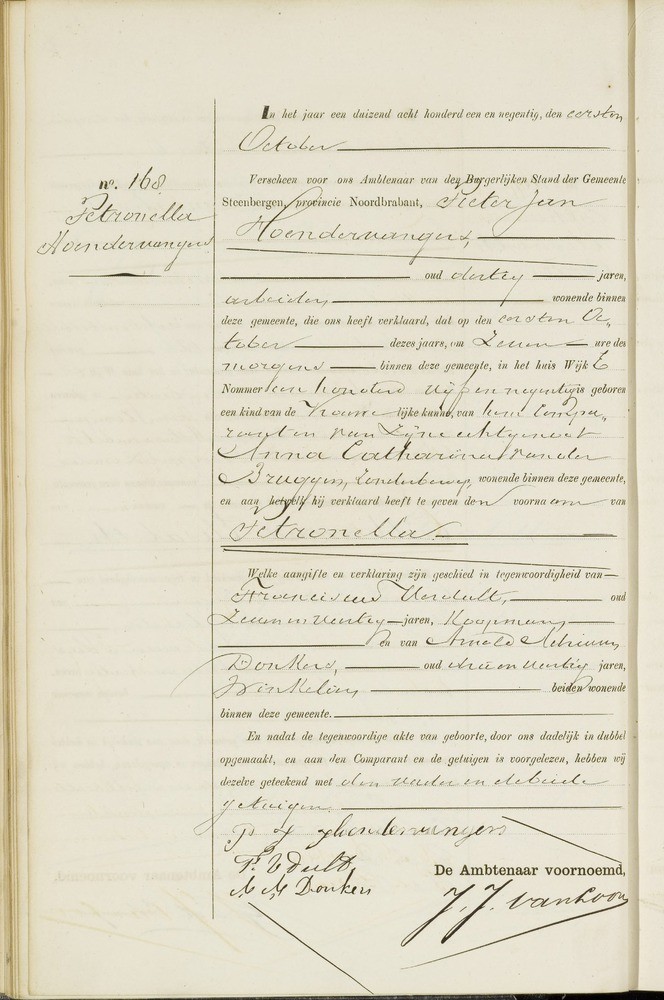 In het jaar een duizend acht honderd een en negentig, den eersten
October
nº. 168
Petronella
Hoendervangers
Verscheen voor ons Ambtenaar van den Burgerlijken Stand der Gemeente
Steenbergen, provincie Noordbrabant, Pieter Jan
Hoendervangers,
oud dertig jaren,
arbeider, wonende binnen
deze gemeente, die ons heeft verklaard, dat op den eersten Oc„
tober dezes jaars, om zeven ure des
morgens binnen deze gemeente, in het huis Wijk E
Nommer een honderd vijf en negentig is geboren
een kind van de vrouwelijke kunne, van hem Compa„
rant en van zijne echtgenoot
Anna Catharina van der
Bruggen, zonder beroep, wonende binnen deze gemeente,
en aan hetwelk hij verklaard heeft te geven den voornaam van
Petronella.
Welke aangifte en verklaring zijn geschied in tegenwoordigheid van
Franciscus Verdult, oud
jaren, Koopman,
en van Arnold Adriaan
Donkers, oud jaren,
Winkelier, beiden wonende
binnen deze gemeente.
En nadat de tegenwoordige akte van geboorte, door ons dadelijk in dubbel
opgemaakt, en aan den Comparant en de getuigen is voorgelezen, hebben wij
dezelve geteekend met den vader en de beide
getuigen.
P J Hoendervangers
F. Vdult
A A Donkers
De Ambtenaar voornoemd,
J. J. van Loon